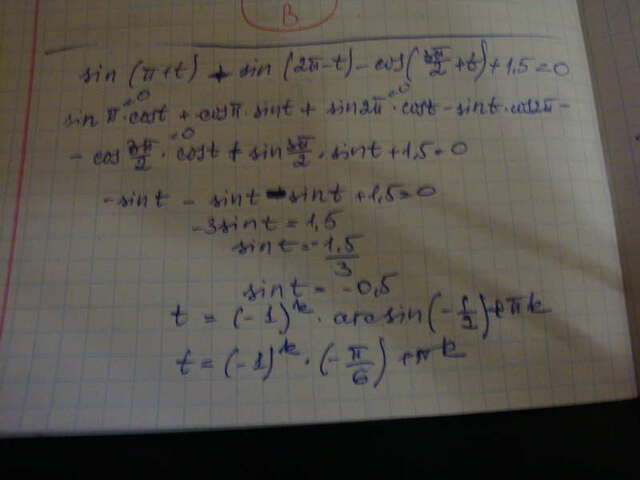 B
sin (π+t) + sin (2π-t) - cos(3π/2 + t) + 1,5 = 0
sin π · cos t + cos π · sin t + sin 2π · cos t - sin t · cos 2π -
- cos 3π/2 · cos t + sin 3π/2 · sin t + 1,5 = 0
- sin t - sin t - sin t + 1,5 = 0
-3 sin t = 1,5
sin t = - 1,5/3
sin t = -0,5
t = (-1)^k · arcsin (-1/2) + πk
t = (-1)^k · (-π/6) + πk